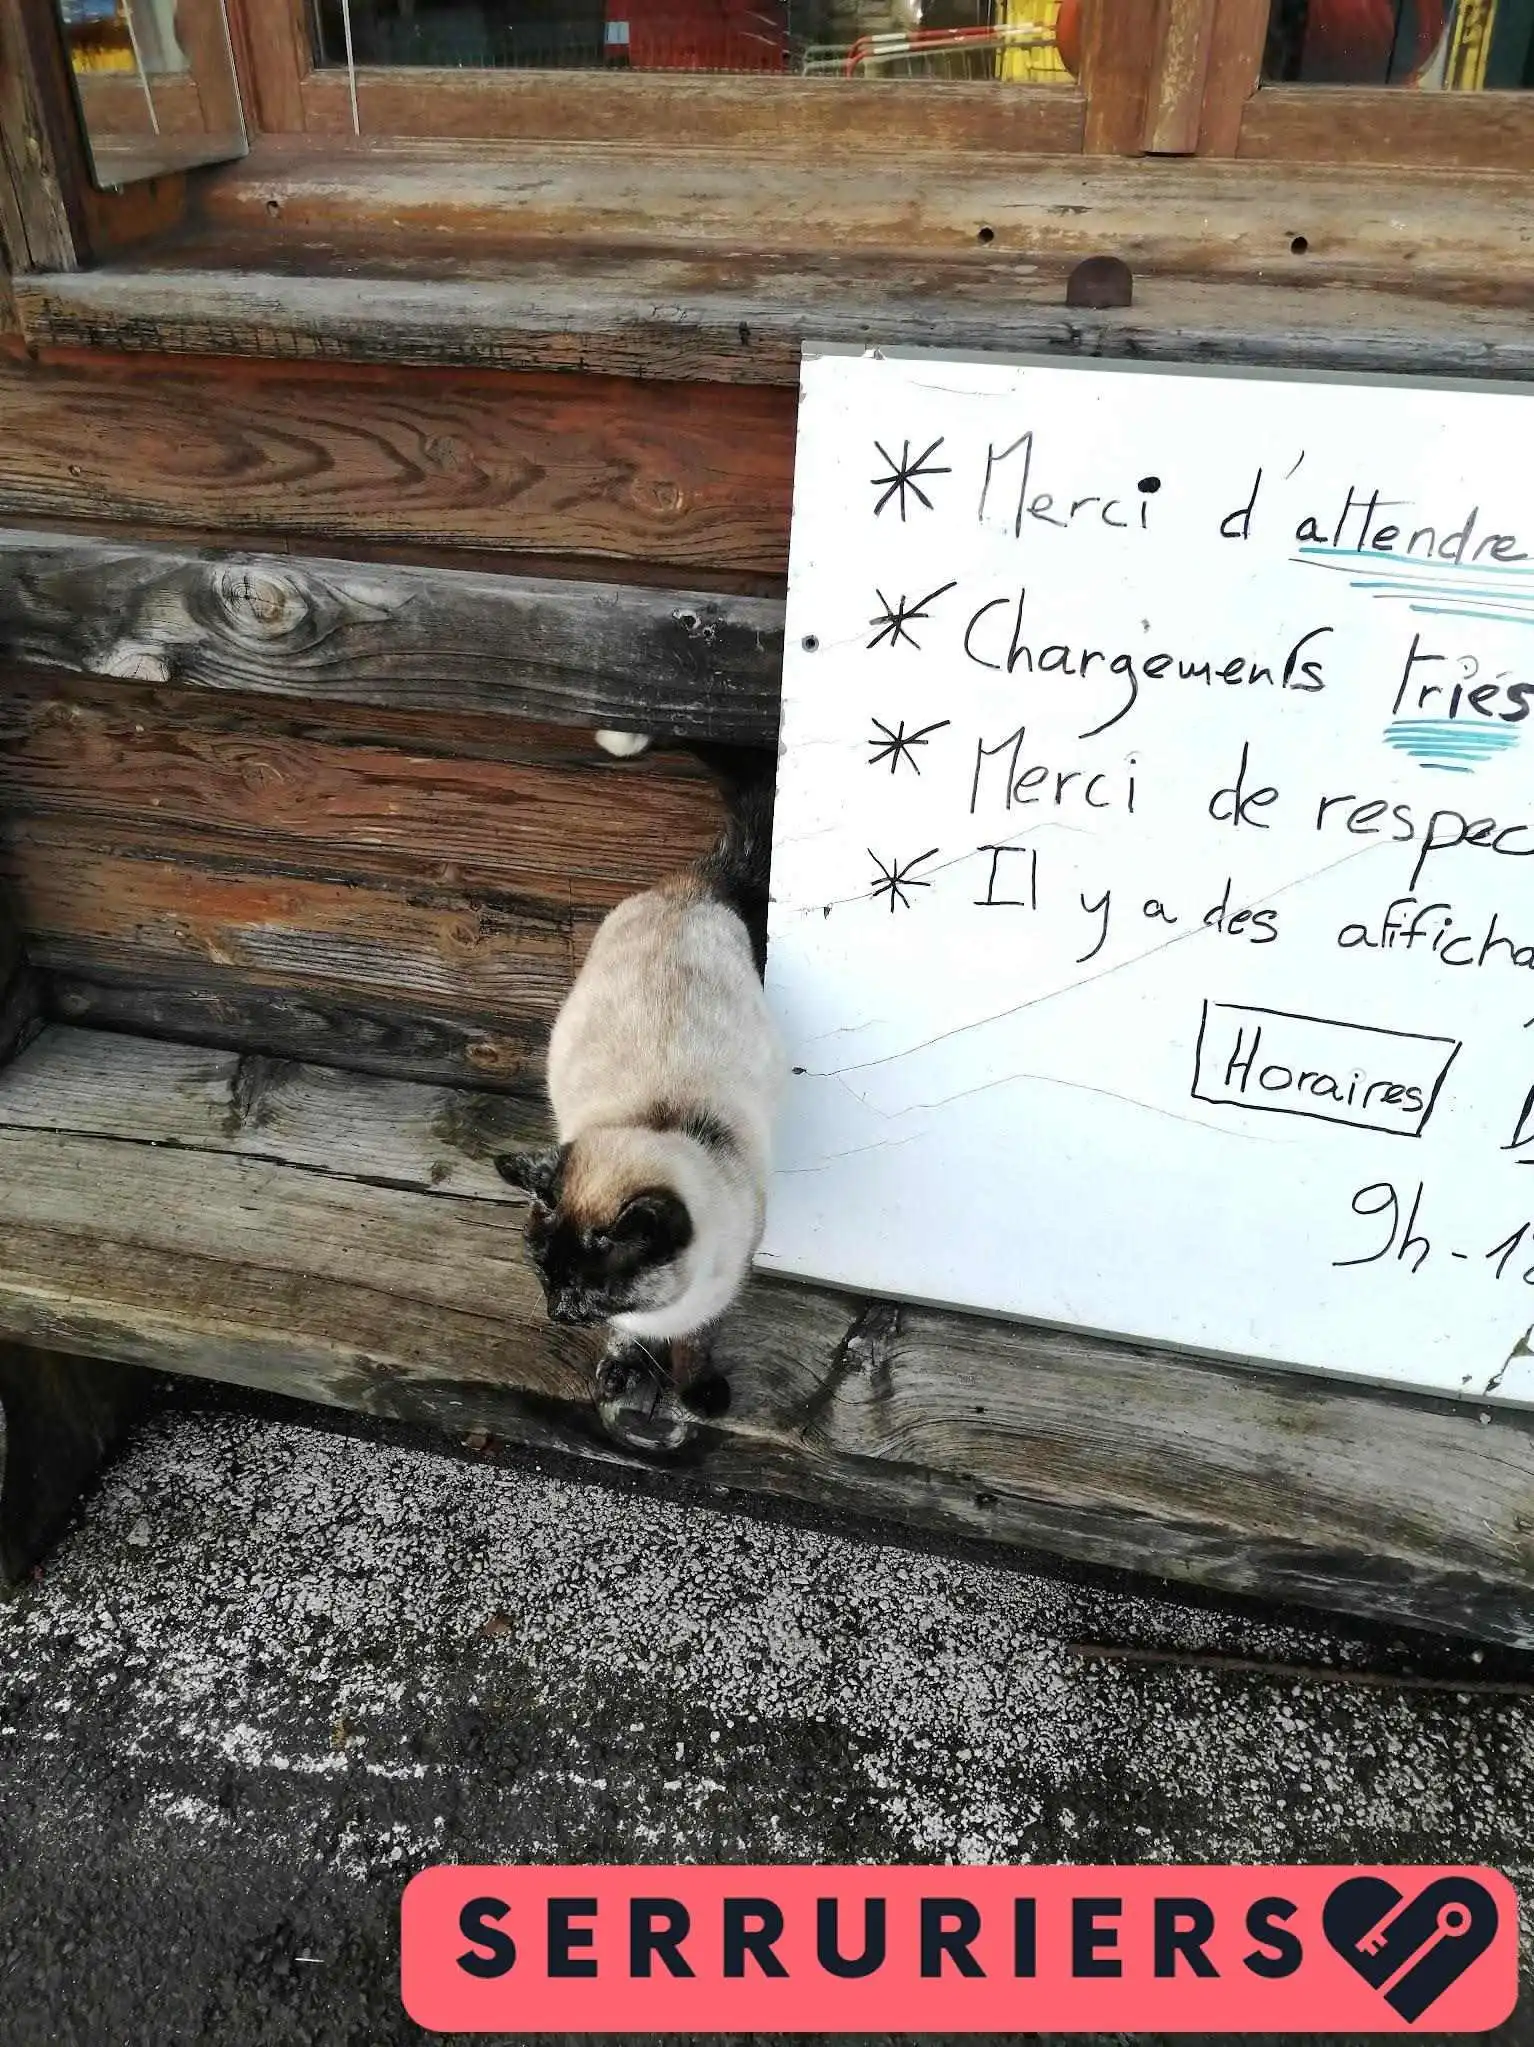 * Merci d'attendre
* Chargements triés
* Merci de respec
* Il y a des afficha
Horaires
9h-1
SERRURIERS